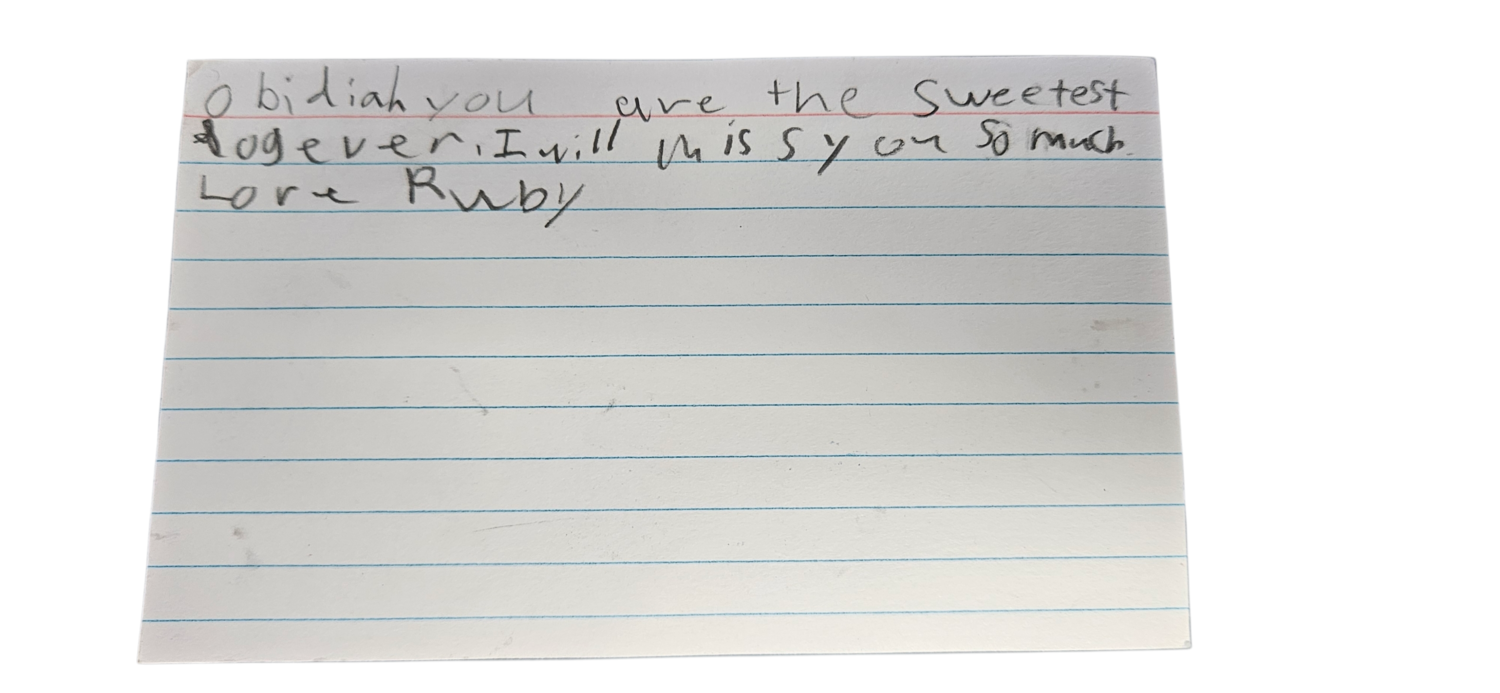 Obidiah you are the sweetest
dog ever. I will miss you so much.
Love Ruby